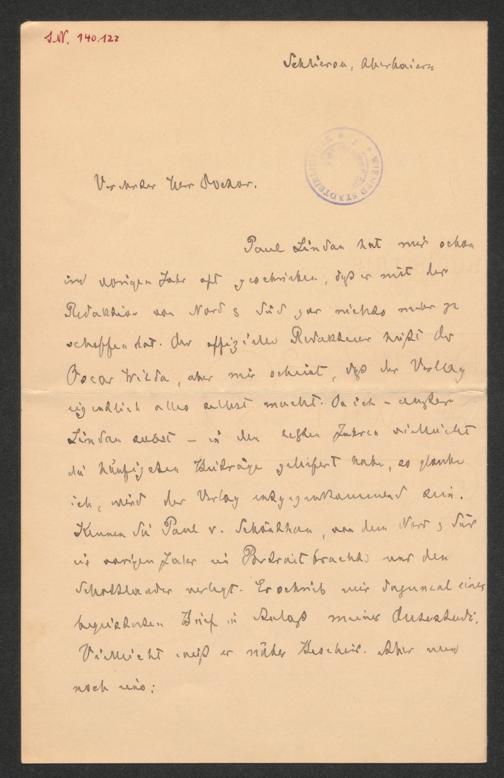 I.N. 140.122
Schliersee, Oberbaiern
WIENER STADTBIBLIOTHEK
Verehrter Herr Doctor.
Paul Lindau hat mir schon
im vorigen Jahr oft geschrieben, daß er mit der
Redaktion von Nord & Süd gar nichts mehr zu
schaffen hat. Der offizielle Redakteur heißt Dr
Oscar Wilda, aber mir scheint, daß der Verlag
eigentlich alles selbst macht. Da ich – außer
Lindau selbst – in den letzten Jahren vielleicht
die häufigsten Beiträge geliefert habe, so glaube
ich, wird der Verlag entgegenkommend sein.
Kennen Sie Paul v. Schönthan, von dem Nord & Süd
im vorigen Jahr ein Portrait brachte und den
Schottlaender verlegt. Er schrieb mir dazumal einen
begeisterten Brief in Anlaß meiner
Vielleicht weiß er näher Bescheid. Aber nun
noch eins: